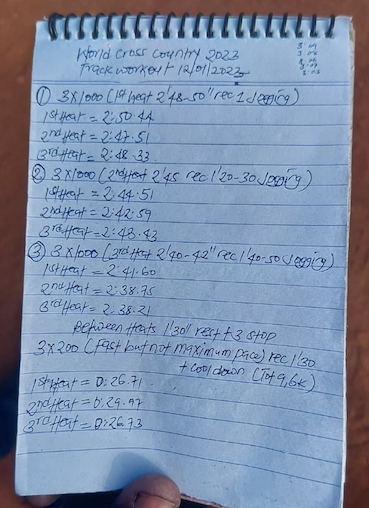 World Cross Country 2023
Track workout 12/01/2023
① 3x1000 (1st heat 2'48-50" rec 1 Jogging)
1st Heat = 2:50.44
2nd Heat = 2:47.51
3rd Heat = 2:48.33
② 3x1000 (2nd Heat 2'45 rec 1'20-30 Jogging)
1st Heat = 2:44.51
2nd Heat = 2:42.59
3rd Heat = 2:43.43
③ 3x1000 (3rd Heat 2'40-42" rec 1'40-50 Jogging)
1st Heat = 2:41.60
2nd Heat = 2:38.75
3rd Heat = 2:38.21
Between Heats 1'30" rest + 3 stop
3x200 (fast but not maximum pace) rec 1'30
+ cool down (Tot 9,6k)
1st Heat = 0:26.71
2nd Heat = 0:26.73